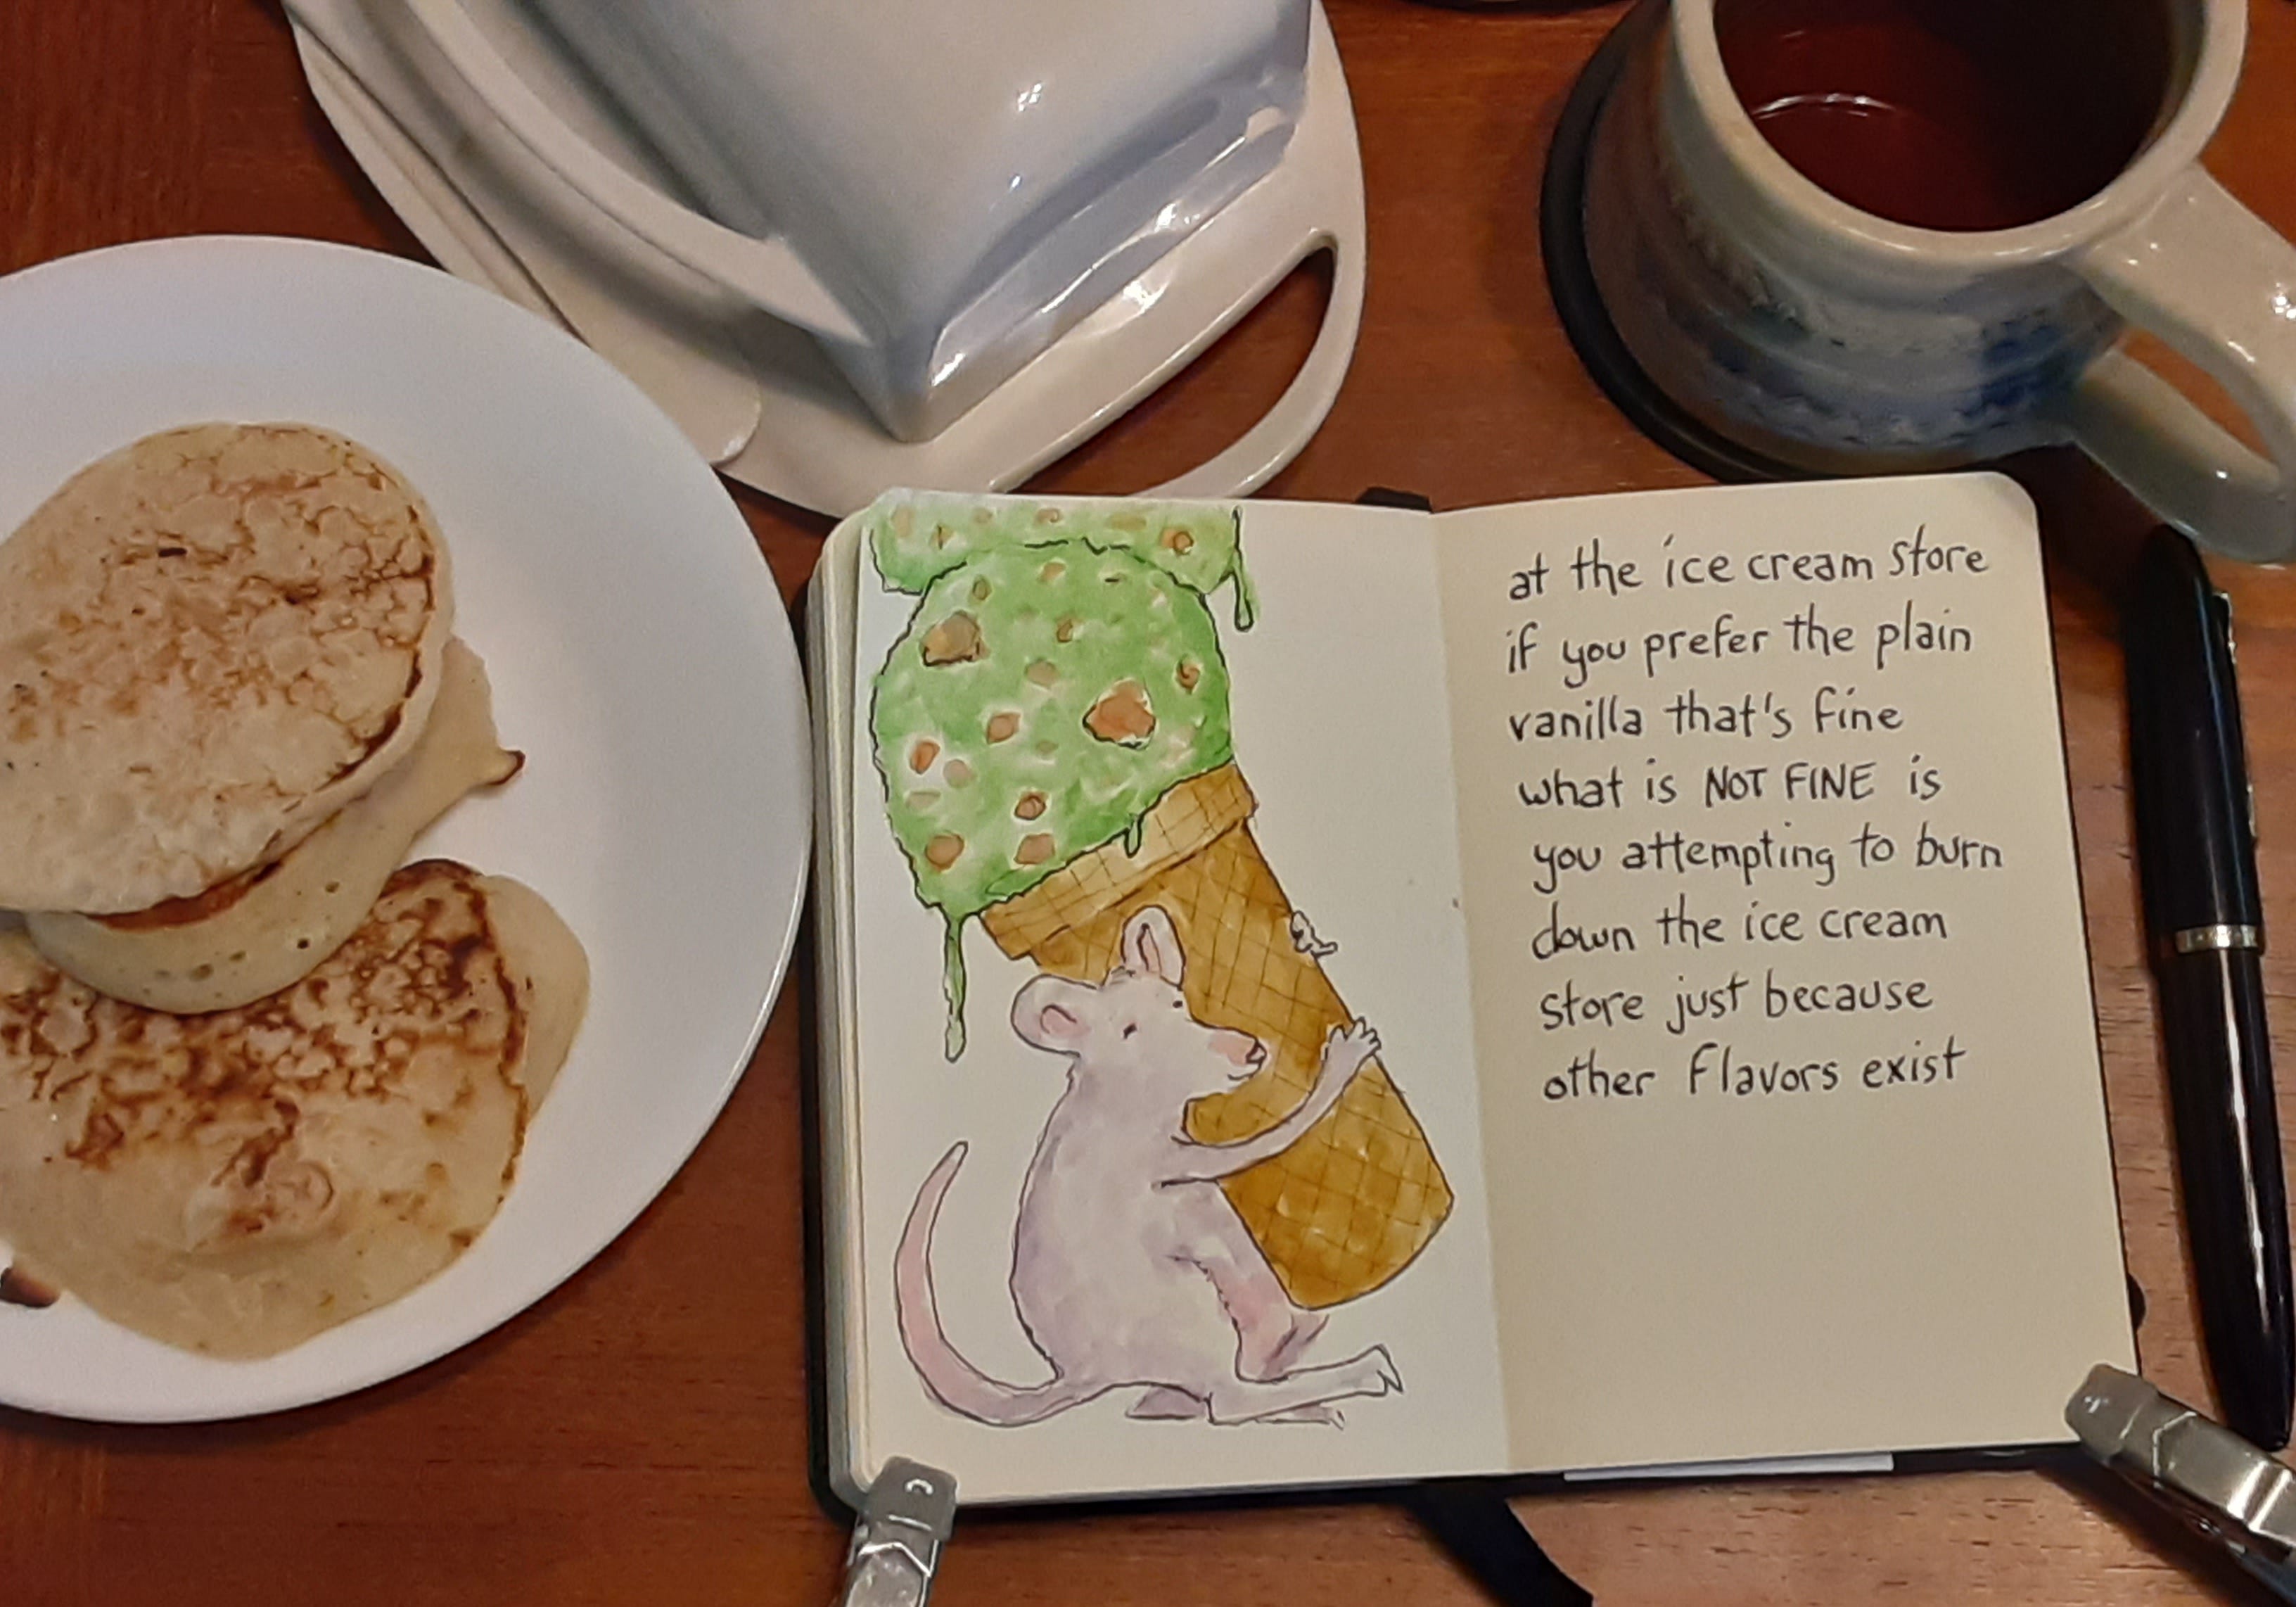 at the ice cream store
if you prefer the plain
vanilla that's fine
what is NOT FINE is
you attempting to burn
down the ice cream
store just because
other flavors exist